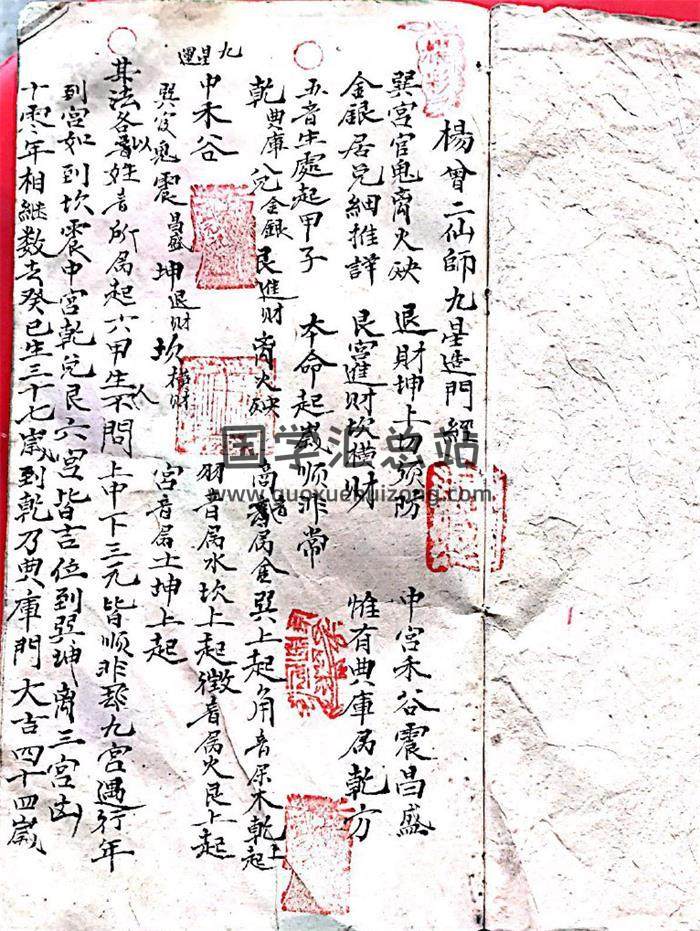 楊曾二仙師九星造門經
巽宮官鬼离火殃 退財坤上切須防 中宮禾谷震昌盛
金銀居兌細推詳 艮宮進財坎橫財 惟有典庫居乾方
五音生處起甲子 本命起歲順非常
乾典庫 兌金銀 艮進財 离火殃 商音属金巽上起角音属木乾上起
九星運
中禾谷 羽音属水坎上起徵音属火艮上起
巽官鬼 震昌盛 坤退財 坎橫財 宮音属土坤上起
其法各以音姓音所属起六甲生人不問上中下三元皆順非九宮遇行年
到宮如到坎震中宮乾兌艮六宮皆吉位到巽坤离三宮凶
十零年相継数去癸巳生三十七歲到乾乃典庫門大吉四十四歲
国学汇总站
www.guoxuehuizong.com